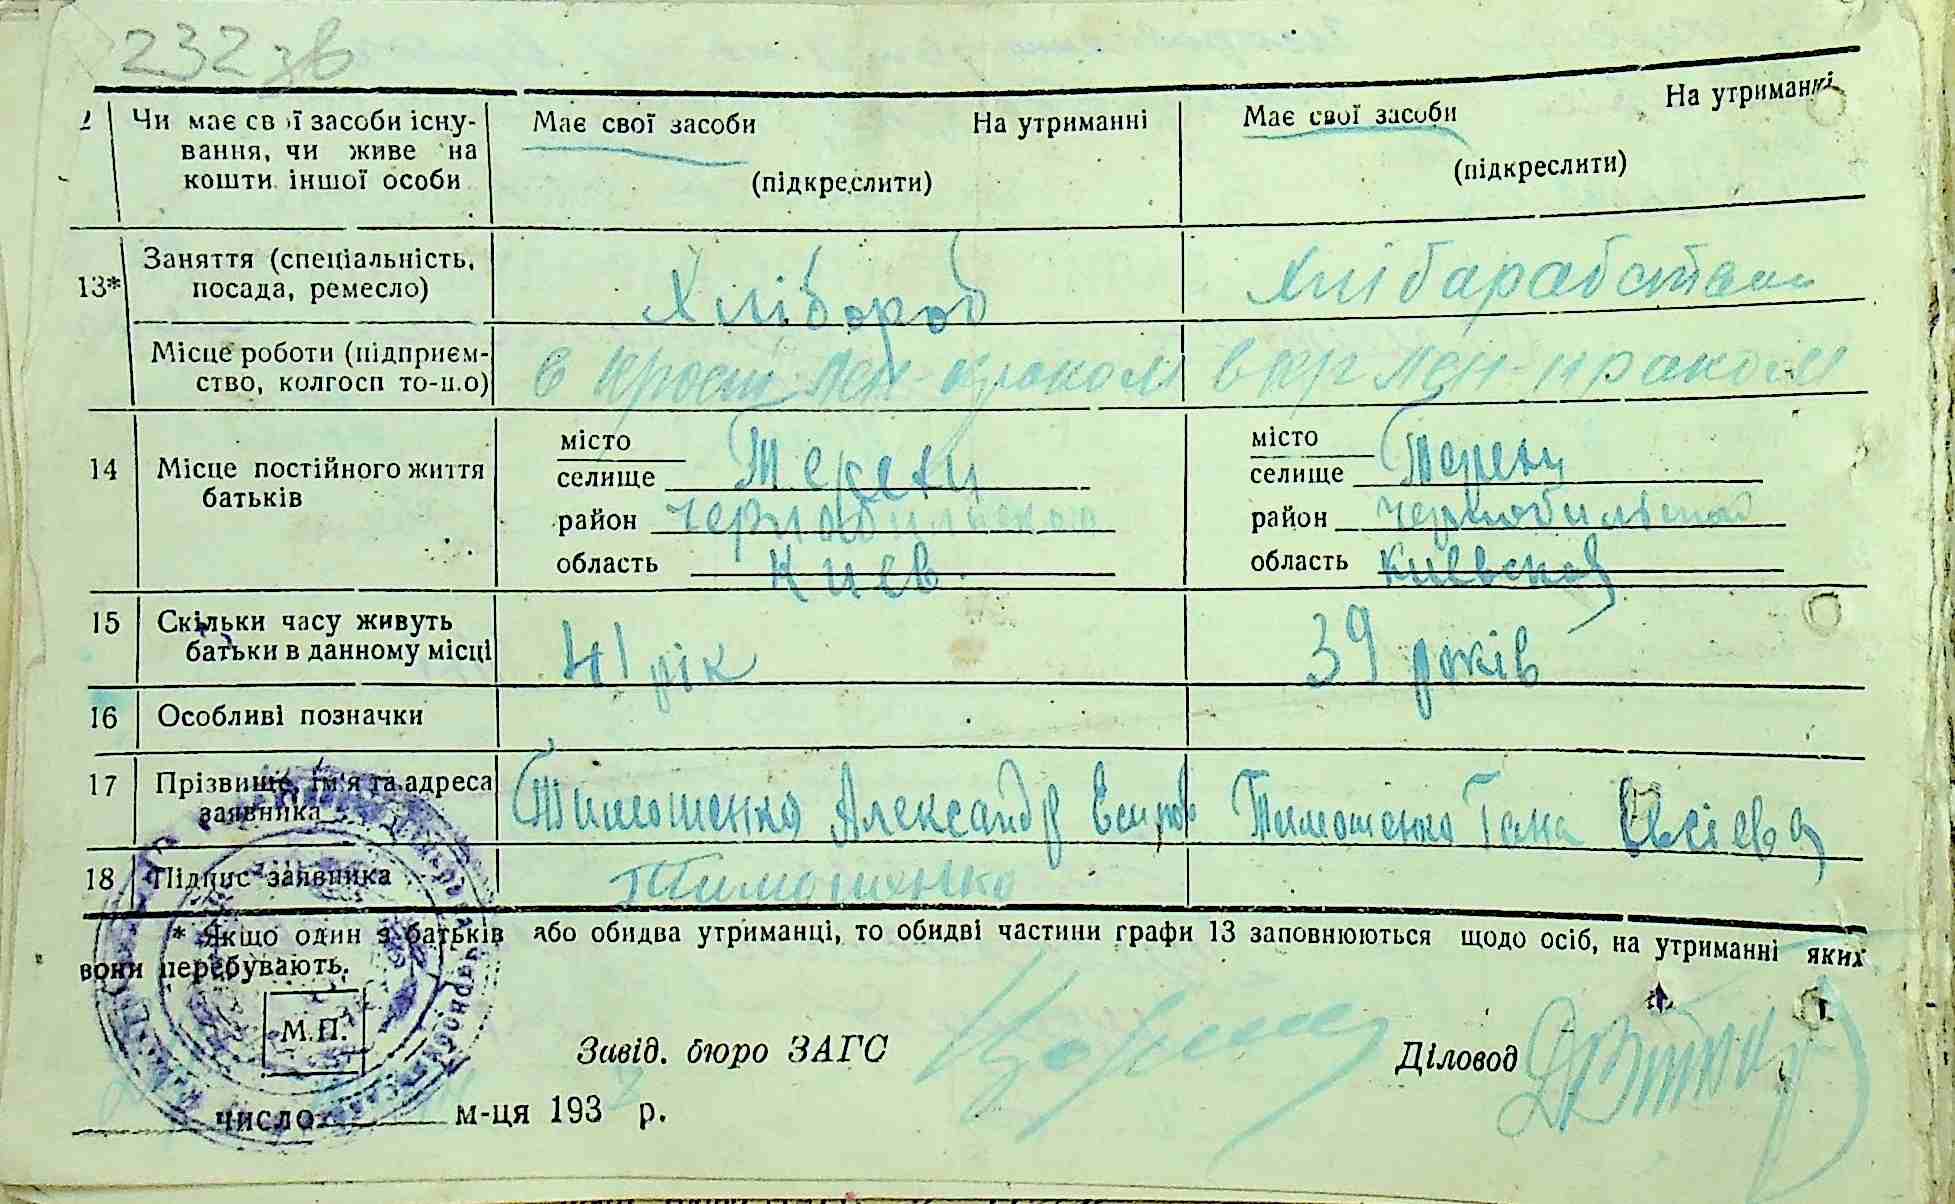 232 зв
2 Чи має свої засоби існу- Має свої засоби На утриманні Має свої засоби На утриманні
вання, чи живе на
кошти іншої особи (підкреслити) (підкреслити)
13* Заняття (спеціальність,
посада, ремесло) Хлібороб Хлібарабством
Місце роботи (підприєм-
ство, колгосп то-що)
14 Місце постійного життя
батьків
місто
селище Терехи
район Чернобильскою
область Киев.
місто
селище Терехи
район
область Киевской
15 Скільки часу живуть
батьки в данному місці 41 рік 39 років
16 Особливі позначки
17 Прізвище, ім'я та адреса
заявника Тимошенко Александр Тимошенко
18 Підпис заявника Тимошенко
* Якщо один з батьків або обидва утриманці, то обидві частини графи 13 заповнюються щодо осіб, на утриманні яких
вони перебувають.
М.П.
Завід. бюро ЗАГС Діловод
число м-ця 193 р.